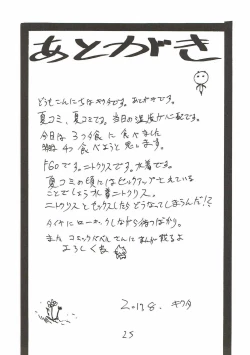 あとがき
どうもこんにちはキクタです。あとがきです。
夏コミ、夏コミです。当日の温度が心配です。
今日は3つ食に食べました
4つ食べようと思います。
FGOです。ニトクリスです。水着です。
夏コミの頃にはピックアップされている
ことでしょう水着ニトクリス。
ニトクリスとセックスしたらどうなってしまうんだ!?
しながら待つばかり。
また コミックバベル さんに まんが 載るよ
よろしくね
2018. キクタ
25